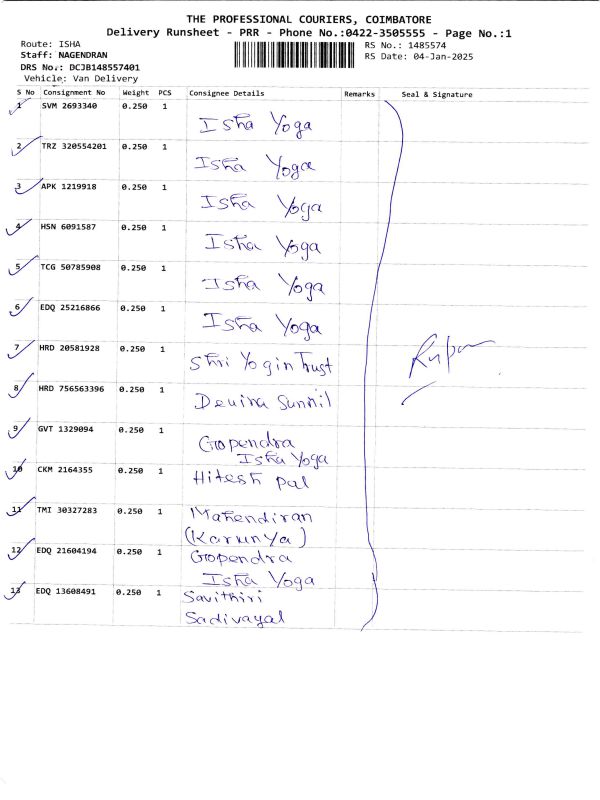 THE PROFESSIONAL COURIERS, COIMBATORE
Delivery Runsheet - PRR - Phone No.:0422-3505555 - Page No.:1
Route: ISHA
RS No.: 1485574
Staff: NAGENDRAN
RS Date: 04-Jan-2025
DRS No.: DCJB148557401
Vehicle: Van Delivery
S No Consignment No Weight PCS Consignee Details Remarks Seal & Signature
1 SVM 2693340 0.250 1
Isha Yoga
2 TRZ 320554201 0.250 1
Isha Yoga
3 APK 1219918 0.250 1
Isha Yoga
4 HSN 6091587 0.250 1
Isha Yoga
5 TCG 50785908 0.250 1
Isha Yoga
6 EDQ 25216866 0.250 1
Isha Yoga
7 HRD 20581928 0.250 1
Shri Yogin Trust
8 HRD 756563396 0.250 1
Devina Sunnil
9 GVT 1329094 0.250 1
Gopendra
Isha Yoga
10 CKM 2164355 0.250 1
Hitesh Pal
11 TMI 30327283 0.250 1
Mahendiran
(Karunya)
12 EDQ 21604194 0.250 1
Gopendra
Isha Yoga
13 EDQ 13608491 0.250 1
Savithiri
Sadivayal